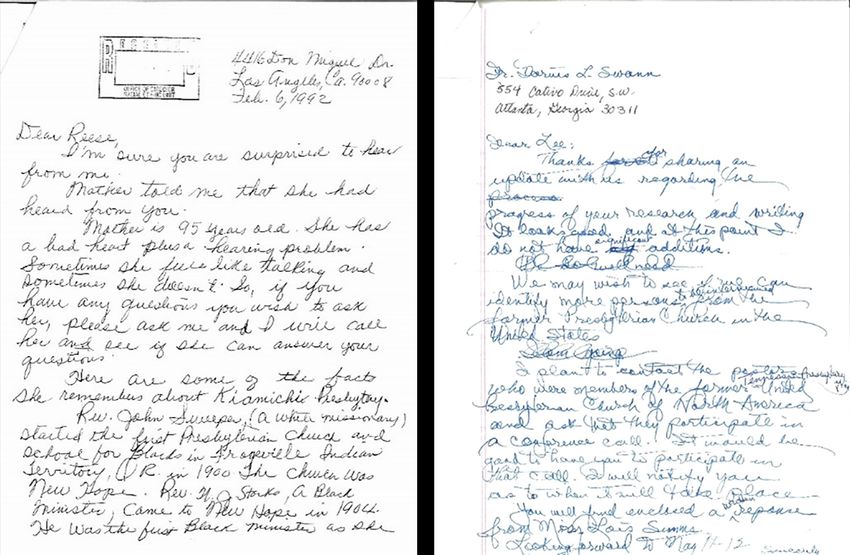 4416 Don Miguel Dr.
Los Angeles, Ca. 90008
Feb. 6, 1992
Dear Reese,
I'm sure you are surprised to hear
from me.
Mother told me that she had
heard from you.
Mother is 95 years old. She has
a bad heart plus a hearing problem.
Sometimes she feels like talking and
sometimes she doesn't. So, if you
have any questions you wish to ask
her, please ask me and I will call
her and see if she can answer your
questions.
Here are some of the facts
she remembers about Kiamichi Presbytery.
Rev. John Sweeper, (A white missionary)
started the first Presbyterian Church and
school for Blacks in Indian
Territory, in 1900. The Church was
New Hope. Rev. Storks, A Black
Minister, Came to New Hope in 1904.
He was the first Black minister as she
Dr. Darius L. Swann
854 Drive, S.W.
Atlanta, Georgia 30311
Dear Lee:
Thanks for sharing an
update with us regarding the
process
progress of your research and writing
It looks good, and at this point I
do not have significant additions.
We may wish to see if we can
identify more persons to be interviewed from the
former Presbyterian Church in the
United States
I plan to contact the
who were members of the former United
Presbyterian Church of North America
and ask that they participate in
a conference call. It would be
good to have you to participate in
that call. I will notify you
as to when it will take place.
You will find enclosed a written response
from Lois
Looking forward to May 11-12.
Sincerely